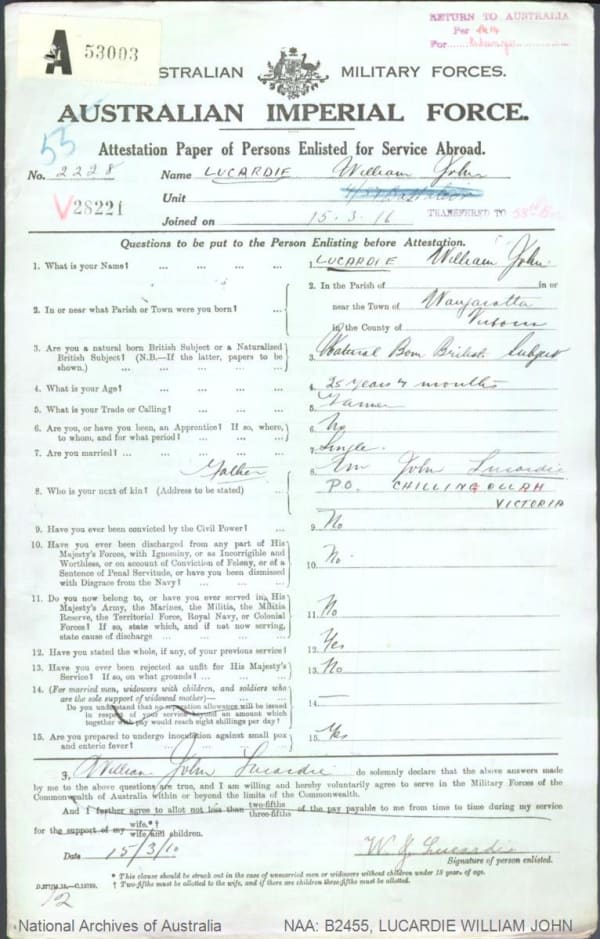 A 53003
RETURN TO AUSTRALIA
Per
For
AUSTRALIAN MILITARY FORCES.
AUSTRALIAN IMPERIAL FORCE.
53
Attestation Paper of Persons Enlisted for Service Abroad.
No. 2228 Name LUCARDIE William John
V28221
Unit
Joined on 15.3.16 TRANSFERRED TO 58th Bn
Questions to be put to the Person Enlisting before Attestation.
1. What is your Name? ... ... ... ... 1. LUCARDIE William John.
2. In or near what Parish or Town were you born? ... 2. In the Parish of in or
near the Town of Wangaratta
in the County of Victoria
3. Are you a natural born British Subject or a Naturalized
British Subject? (N.B.—If the latter, papers to be
shown.) ... ... ... ... 3. Natural Born British Subject
4. What is your Age? ... ... ... 4. 25 years 4 months
5. What is your Trade or Calling? ... ... ... 5. Farmer
6. Are you, or have you been, an Apprentice? If so, where,
to whom, and for what period? ... ... ... 6. No
7. Are you married? ... ... ... ... 7. Single.
Father
8. Who is your next of kin? (Address to be stated) ... 8. John Lucardie
P.O. CHILLINGOLLAH
VICTORIA
9. Have you ever been convicted by the Civil Power? ... 9. No
10. Have you ever been discharged from any part of His
Majesty's Forces, with Ignominy, or as Incorrigible and
Worthless, or on account of Conviction of Felony, or of a
Sentence of Penal Servitude, or have you been dismissed
with Disgrace from the Navy? ... ... ... 10. No.
11. Do you now belong to, or have you ever served in, His
Majesty's Army, the Marines, the Militia, the Militia
Reserve, the Territorial Force, Royal Navy, or Colonial
Forces? If so, state which, and if not now serving,
state cause of discharge ... ... ... 11. No
12. Have you stated the whole, if any, of your previous service? 12. Yes
13. Have you ever been rejected as unfit for His Majesty's
Service? If so, on what grounds? ... ... ... 13. No
14. (For married men, widowers with children, and soldiers who
are the sole support of widowed mother)—
Do you understand that no separation allowance will be issued
in respect of your service beyond an amount which
together with pay would reach eight shillings per day? 14. —
15. Are you prepared to undergo inoculation against small pox
and enteric fever? ... ... ... ... 15. Yes
I, William John Lucardie do solemnly declare that the above answers made
by me to the above questions are true, and I am willing and hereby voluntarily agree to serve in the Military Forces of the
Commonwealth of Australia within or beyond the limits of the Commonwealth.
And I further agree to allot not less than two-fifths three-fifths of the pay payable to me from time to time during my service
for the support of my wife.*† wife and children.
Date 15/3/16 W. J. Lucardie
Signature of person enlisted.
* This clause should be struck out in the case of unmarried men or widowers without children under 18 years of age.
† Two-fifths must be allotted to the wife, and if there are children three-fifths must be allotted.
12
National Archives of Australia NAA: B2455, LUCARDIE WILLIAM JOHN